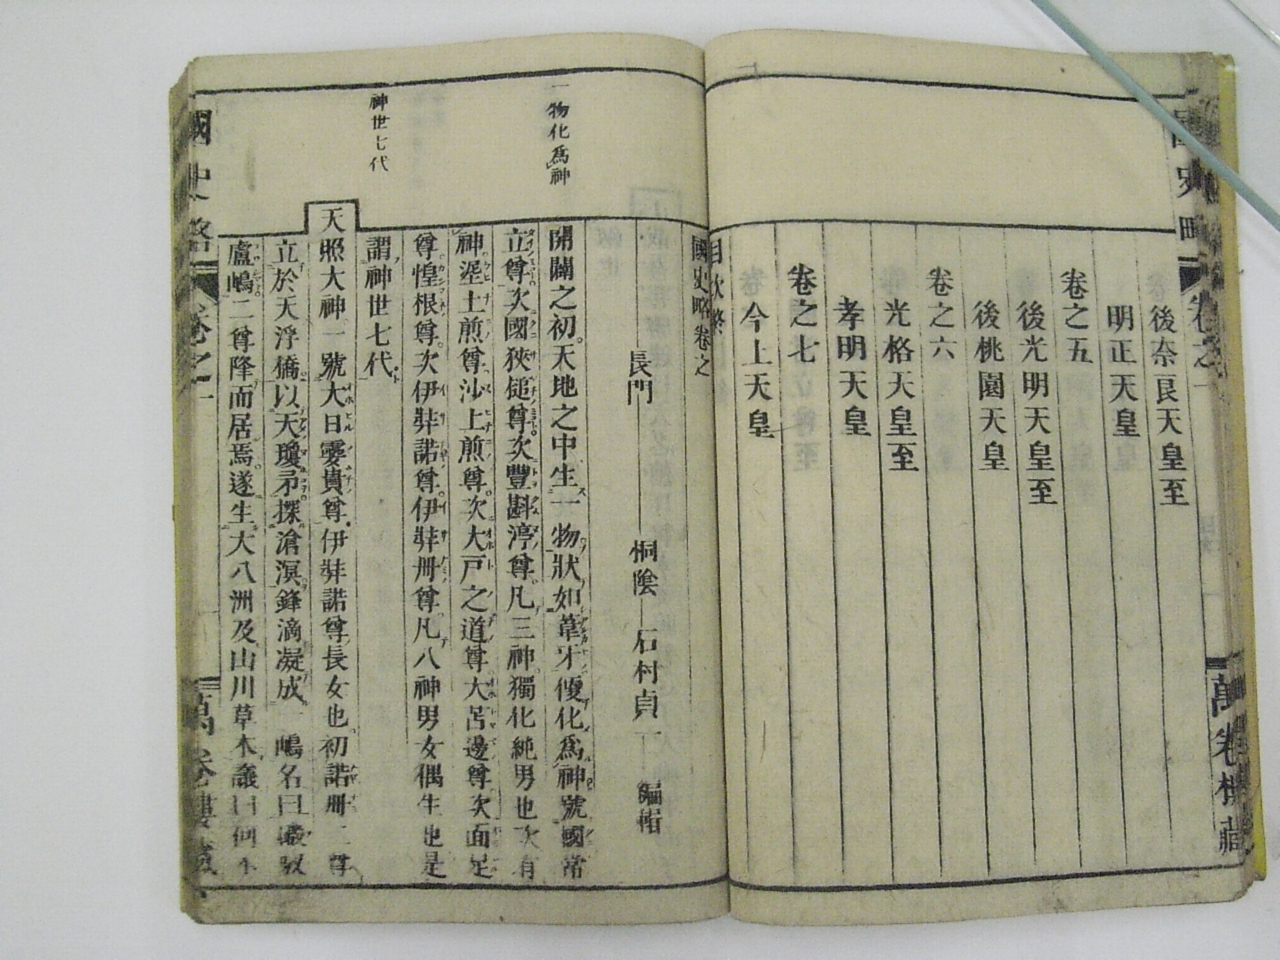 後奈良天皇至
明正天皇
卷之五
後光明天皇至
後桃園天皇
卷之六
光格天皇至
孝明天皇
卷之七
今上天皇
目次終
國史略卷之
長門 桐陰 石村貞一 編輯
一物化爲神
開闢之初。天地之中生一物。狀如葦牙。便化爲神。號國常
立尊。次國狹槌尊。次豐斟渟尊。凡三神。獨化純男也。次有
神。埿土煎尊。沙土煎尊。次大戸之道尊。大苫邊尊。次面足
尊。惶根尊。次伊弉諾尊。伊弉册尊。凡八神。男女偶生也。是
謂神世七代。
神世七代
天照大神一號大日孁貴尊。伊弉諾尊長女也。初諾册二尊
立於天浮橋。以天瓊矛探滄溟。鋒滴凝成一嶋。名曰馭
盧嶋。二尊降而居焉。遂生大八洲及山川草木。議曰何不
國史略
卷之一
萬卷樓藏